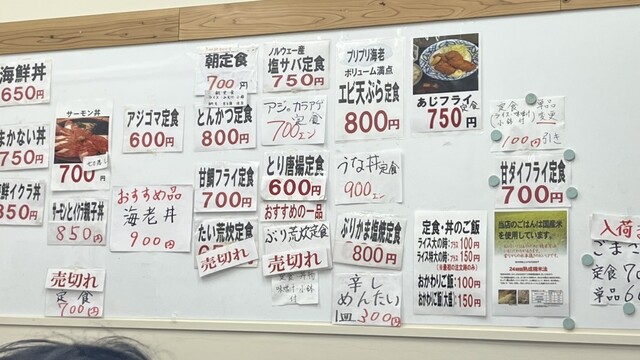 海鮮丼
650円
まかない丼
750円
海鮮イクラ丼
850円
サーモン丼
700円
サーモンとイクラ親子丼
850円
売切れ
定食
700円
アジゴマ定食
600円
おすすめ品
海老丼
900円
朝定食
700円
とんかつ定食
800円
甘鯛フライ定食
700円
たい荒炊定食
売切れ
ノルウェー産
塩サバ定食
750円
アジのカラアゲ
定食
700エン
とり唐揚定食
600円
おすすめの一品
ぶり荒炊定食
売切れ
プリプリ海老
ボリューム満点
エビ天ぷら定食
800円
うな丼定食
900円
ぶりかま塩焼定食
800円
辛し
めんたい
1皿 300円
あじフライ定食
750円
定食・丼のご飯
ライス大の時:プラス100円
ライス特大の時:プラス150円
おかわりご飯:100円
おかわりご飯【大盛】:150円
定食 単品
変更
100円引き
甘ダイフライ定食
700円
当店のごはんは国産米
を使用しています。
24時間熟成精米法
入荷
ごまさ
定食 7
単品 6